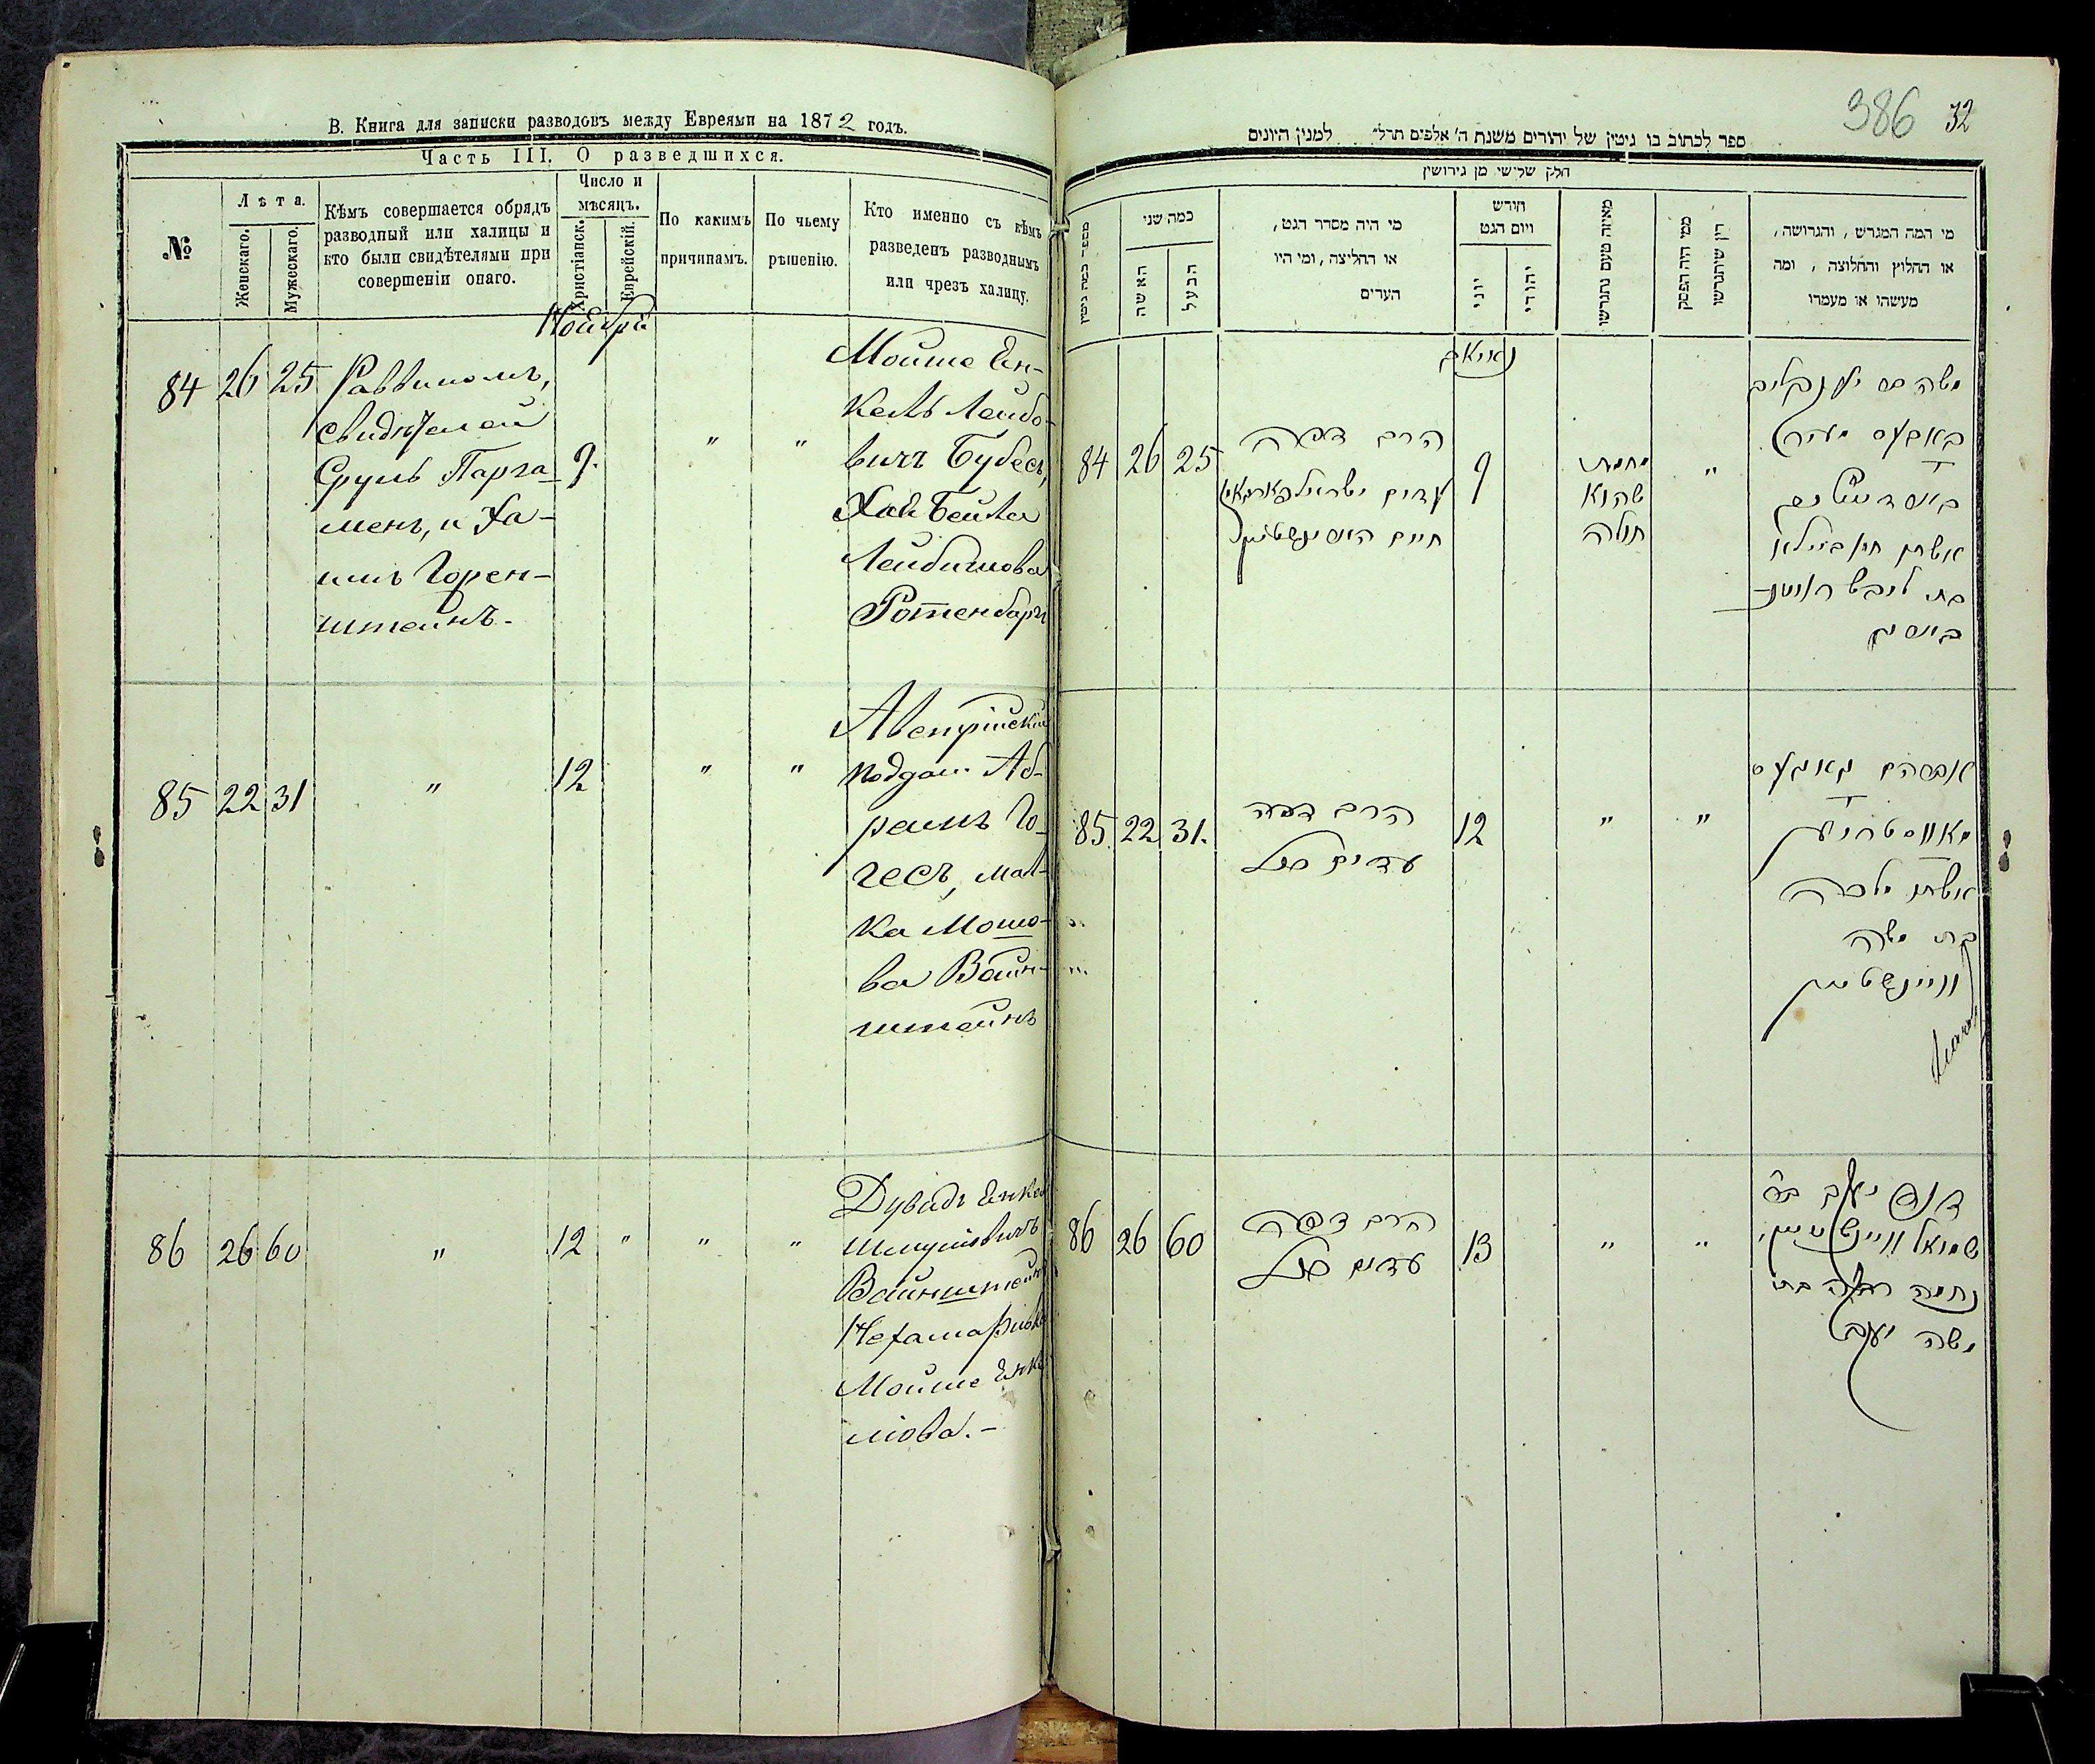 В. Книга для записки разводовъ между Евреями на 1872 годъ.
Часть III. О разведшихся.
№
Лѣта.
Женскаго.
Мужескаго.
Кѣмъ совершается обрядъ
разводный или халицы и
кто были свидѣтелями при
совершеніи онаго.
Число и
мѣсяцъ.
Христіанск.
Еврейскій.
По какимъ
причинамъ.
По чьему
рѣшенію.
Кто именно съ кѣмъ
разведенъ разводнымъ
или чрезъ халицу.
Ноября
84 26 25 Раввиномъ,
свидѣтелей
Сруль Парга-
менъ, и Ха-
имъ Горен-
штейнъ.
9.
" "
Мойше Ен-
кель Лейбо-
вичъ Бубесъ,
Хая Бейла
Лейбишова
Ротенбаръ
85 22 31 " 12 " "
Австрійскій
поддан. Аб-
рамъ Го-
гесъ, мал-
ка Мошо-
ва Вайн-
штейнъ
86 26 60 " 12 " " "
Дувидъ Енкел
Шмулiовичъ
Вайнштейнъ
Нехама
Мойше Енке
лiова.-
386 32
ספר לכתוב בו גיטין של יהודים משנת ה' אלפים תרל" למנין היונים
חלק שלישי מן גירושין
מספר כמה גיטין
כמה שני
האשה
הבעל
מי היה מסדר הגט,
או החליצה, ומי היו
העדים
חודש
ויום הגט
יוני
יהודי
מאיזה טעם נתגרשו
ממי היה הפסק
דין שיתגרשו
מי המה המגרש, והגרושה,
או החלוץ והחלוצה, ומה
מעשהו או מעמדו
84 26 25
הרב דפה
עדים ישראל
חיים
9
מחמת
שהוא
חולה
"
משה
אשתו חי' ביילא
בת ליבש
85 22 31.
הרב דפה
עדים הנ"ל
12 " "
אברהם
אשתו מלכה
בת משה
וויינשטיין
86 26 60
הרב דפה
עדים הנ"ל
13 " "
דוד יעקב בר'
שמואל וויינשטיין,
נחמה בת
משה יעקב